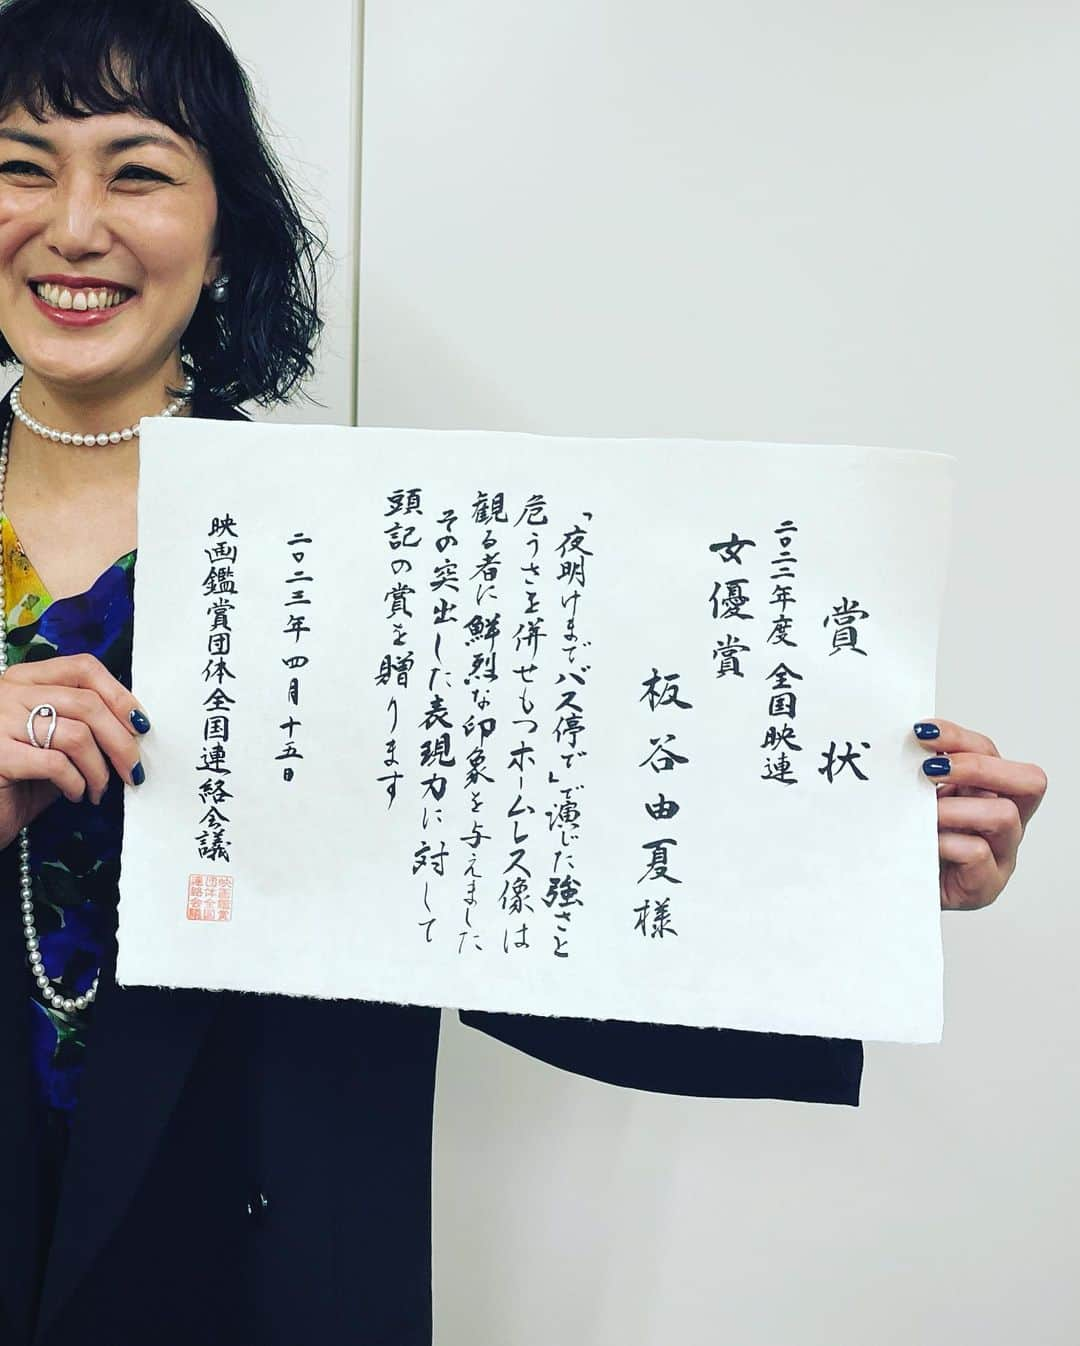 賞状
二〇二二年度 全国映連
女優賞
板谷由夏様
「夜明けまでバス停で」で演じた強さと
危うさを併せもつホームレス像は
観る者に鮮烈な印象を与えました
その突出した表現力に対して
頭記の賞を贈ります
二〇二三年四月十五日
映画鑑賞団体全国連絡会議
映画鑑賞
団体全国
連絡会議